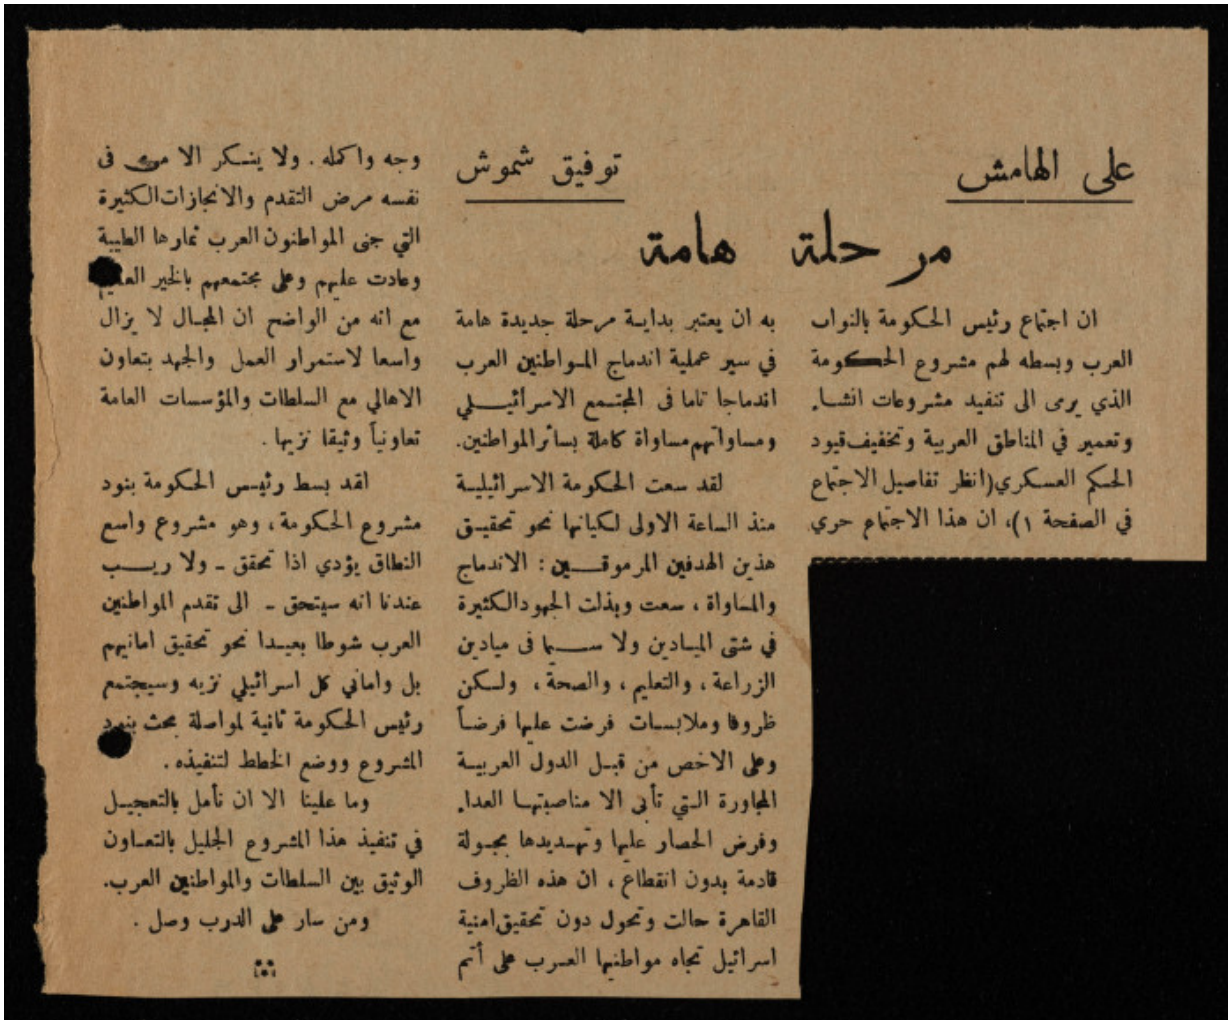 على الهامش
توفيق شموش
مرحلة هامة
ان اجتماع رئيس الحكومة بالنواب
العرب وبسطه لهم مشروع الحكومة
الذي يرمى الى تنفيد مشروعات انشاء
وتعمير في المناطق العربية وتخفيف قيود
الحكم العسكري(انظر تفاصيل الاجتماع
في الصفحة ١)، ان هذا الاجتماع حري
به ان يعتبر بداية مرحلة جديدة هامة
في سير عملية اندماج المواطنين العرب
اندماجا تاما فى المجتمع الاسرائيلي
ومساواتهم مساواة كاملة بسائر المواطنين.
لقد سعت الحكومة الاسرائيلية
منذ الساعة الاولى لكيانها نحو تحقيق
هذين الهدفين المرموقين : الاندماج
والمساواة ، سعت وبذلت الجهود الكثيرة
في شتى الميادين ولا سيما فى ميادين
الزراعة ، والتعليم ، والصحة ، ولكن
ظروفا وملابسات فرضت عليها فرضاً
وعلى الاخص من قبل الدول العربية
المجاورة التي تأبى الا مناصبتها العداء
وفرض الحصار عليها وتهديدها بجولة
قادمة بدون انقطاع ، ان هذه الظروف
القاهرة حالت وتحول دون تحقيق امنية
اسرائيل تجاه مواطنيها العرب على أتم
وجه واكمله . ولا ينكر الا من فى
نفسه مرض التقدم والانجازات الكثيرة
التي جنى المواطنون العرب ثمارها الطيبة
وعادت عليهم وعلى مجتمعهم بالخير العميم
مع انه من الواضح ان المجال لا يزال
واسعا لاستمرار العمل والجهد بتعاون
الاهالي مع السلطات والمؤسسات العامة
تعاونياً وثيقا نزيها .
لقد بسط رئيس الحكومة بنود
مشروع الحكومة ، وهو مشروع واسع
النطاق يؤدي اذا تحقق - ولا ريب
عندنا انه سيتحق - الى تقدم المواطنين
العرب شوطا بعيدا نحو تحقيق امانيهم
بل واماني كل اسرائيلي نزيه وسيجتمع
رئيس الحكومة ثانية لمواصلة بحث بنود
المشروع ووضع الخطط لتنفيذه .
وما علينا الا ان نأمل بالتعجيل
في تنفيذ هذا المشروع الجليل بالتعاون
الوثيق بين السلطات والمواطنين العرب.
ومن سار على الدرب وصل .